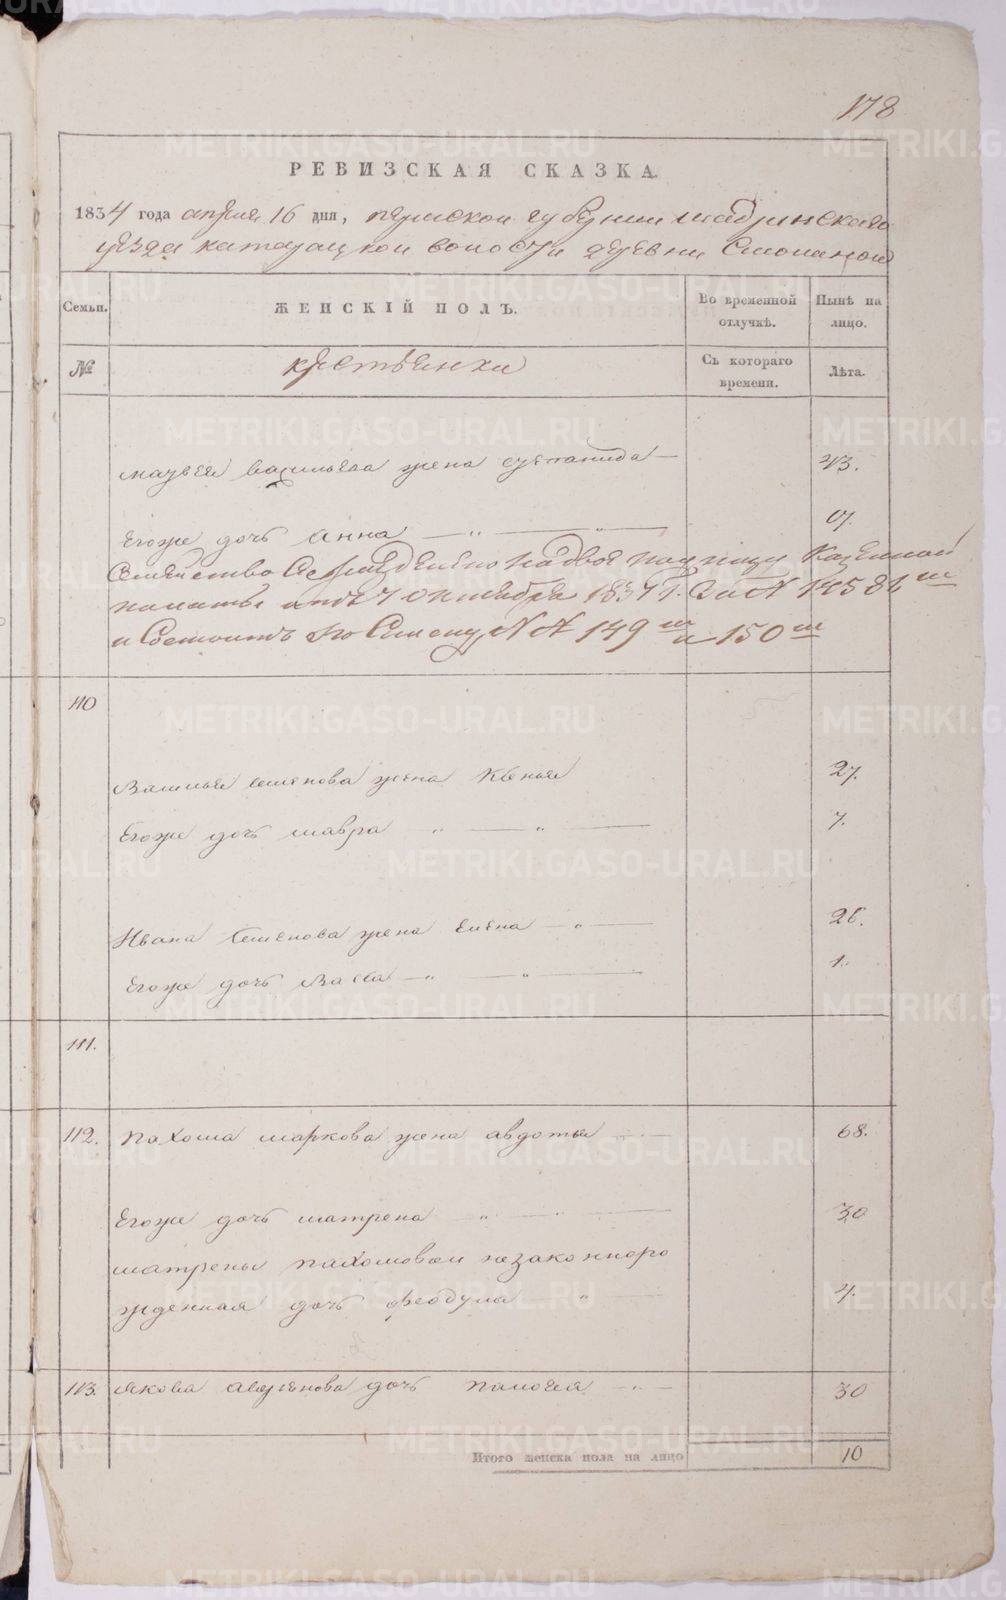 178
РЕВИЗСКАЯ СКАЗКА.
1834 года апреля 16 дня, пермской губернии шадринскаго
уезда катайской волости деревни
Семьи. ЖЕНСКІЙ ПОЛЪ. Во временной отлучкѣ. Нынѣ на лицо.
№ крестьянки Съ котораго времени. Лѣта.
васильева жена степанида 43.
Егоже дочь анна
Семейство разделено на двое по указу Казенной
палаты отъ 7 октября 1837 г. за № 14586
и Состоитъ по Списку № № 149 и 150
110
Василья семенова жена 27.
Егоже дочь мавра 7.
Ивана семенова жена елена 26.
Егоже дочь васса 1.
111.
112. пахома маркова жена авдотья 68.
Егоже дочь матрена 30
матрены пахомовой незаконноро
жденная дочь феодула 4.
113. якова дочь палагея 30
Итого женска пола на лицо 10
METRIKI.GASO-URAL.RU